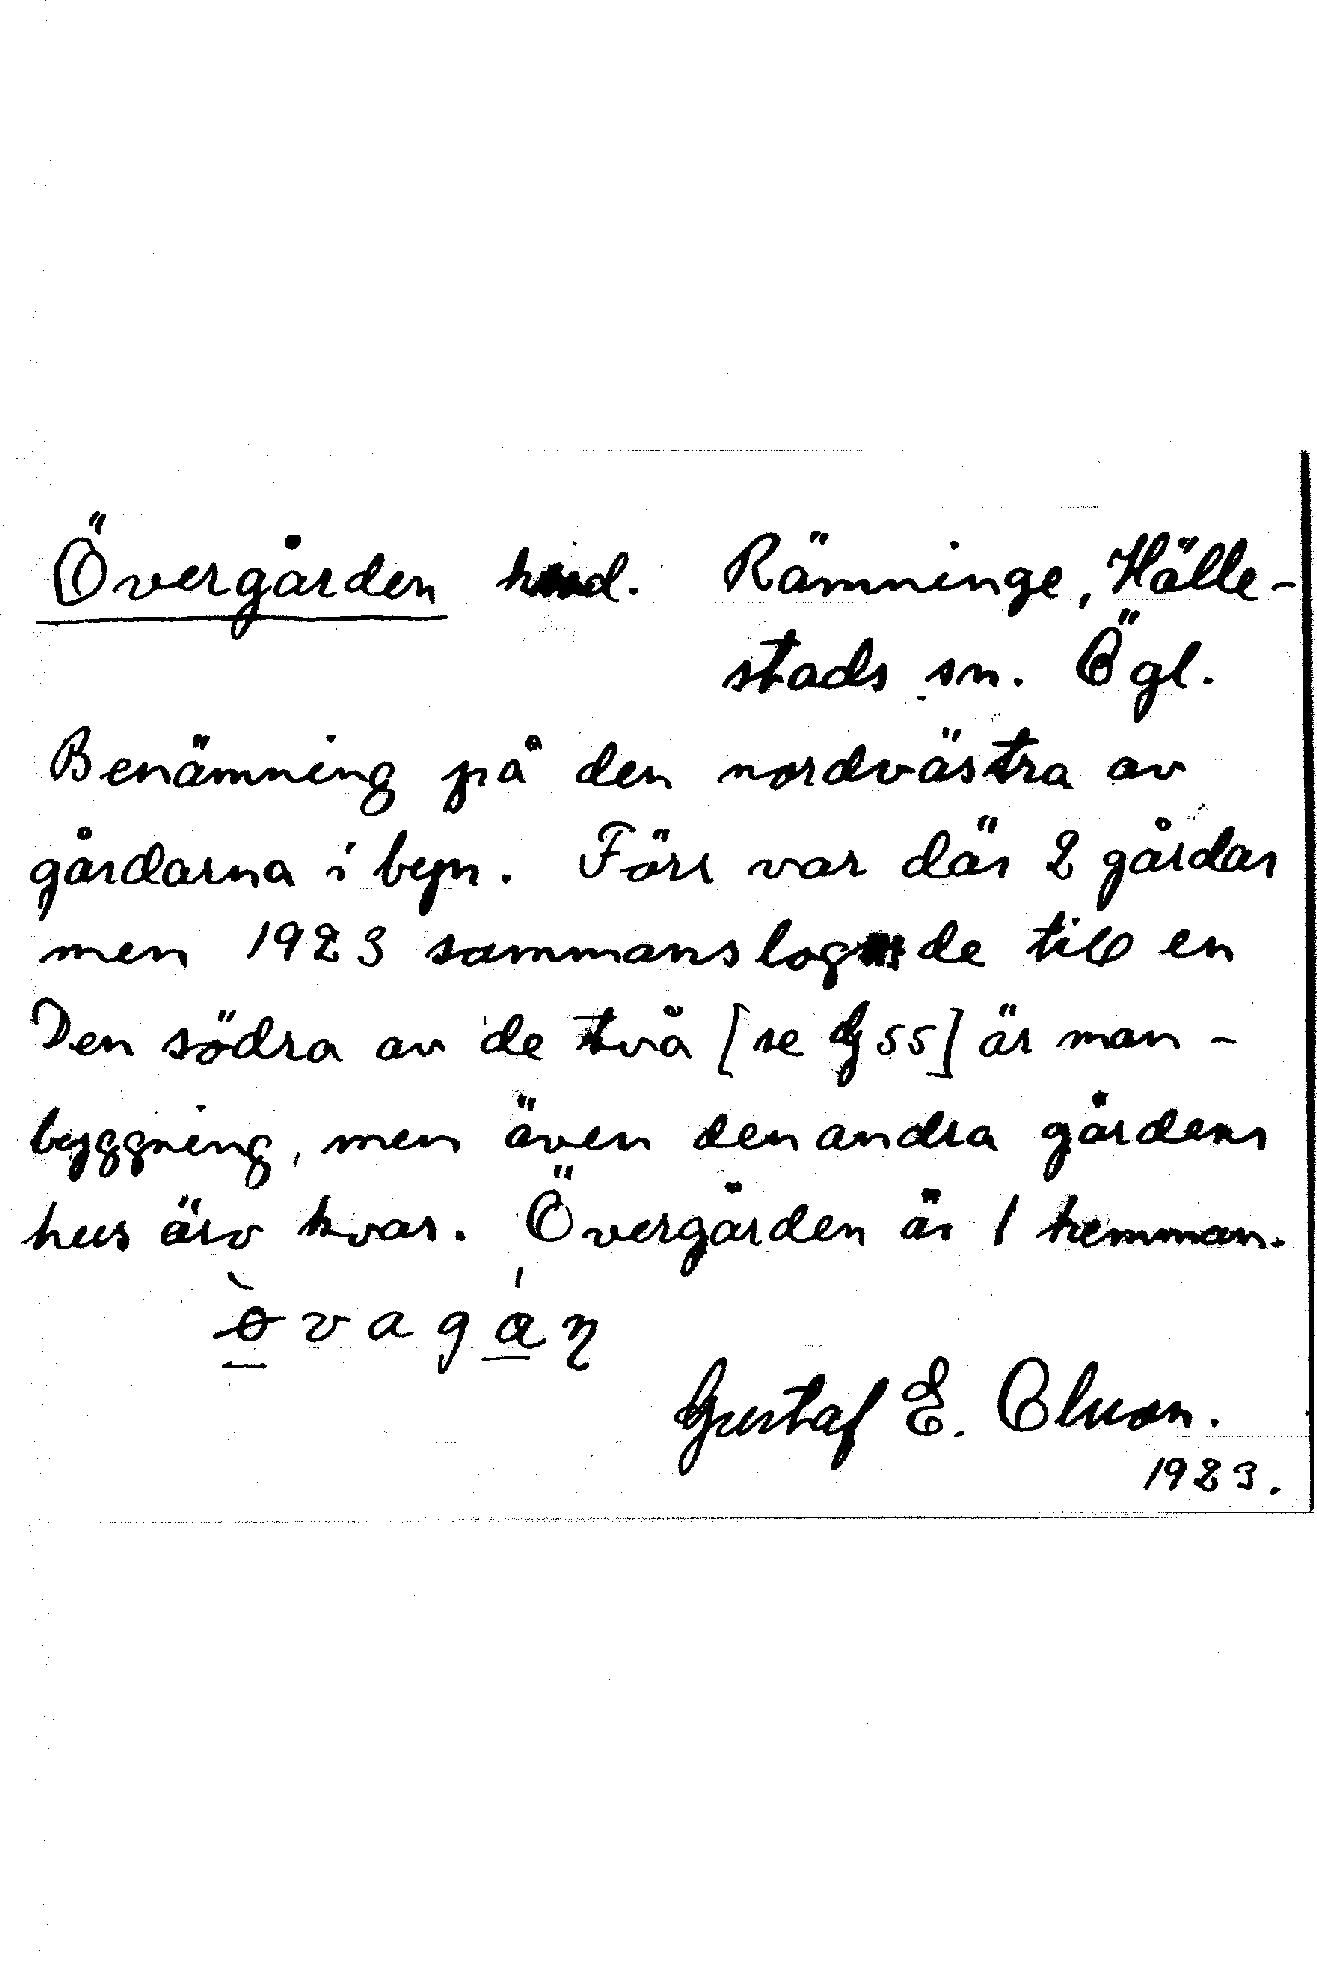 Övergården hmd. Rämninge, Hälle-
stads sn. Ögl.
Benämning på den nordvästra av
gårdarna i byn. Förr var där 2 gårdar
men 1923 sammanslogs de till en
Den södra av de två [se G 55] är man-
byggning, men även den andra gårdens
hus äro kvar. Övergården är 1 hemman.
Gustaf E. Oluson.
1923.